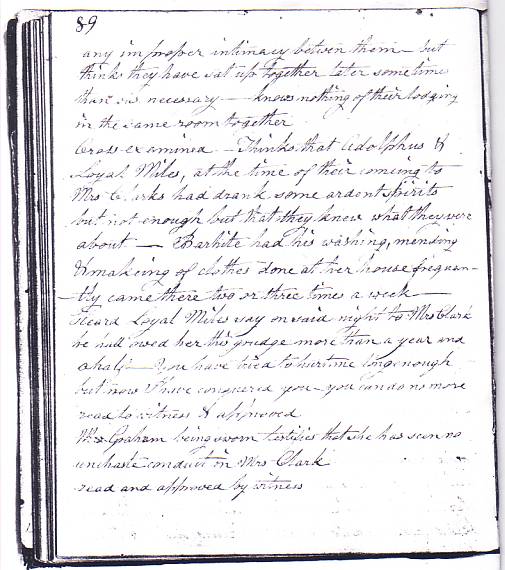 89
any improper intimacy betwen them – but
think they have sat up together later sometime
than was necessary – know nothing of their lodging
in the same room together
Cross-examined – Thinks that Adolphus &
Loyal Miles, at the time of their comeing to
Mrs Clarks had drank some ardent spirits
but not enough but that they knew what they were
about — Barhite had his washing, mending
& makeing of clothes done at her house frequan-
-tly came there two or three times a week —
Heard Loyal Miles say on said night to Mrs Clark
he had owed her this grudge more than a year and
a half – You have tried to hurt me long enough
but now I have conquered you – you can do no more
read to witness & approved
Mrs Graham being sworn testifies that she has seen no
unchaste conduct in Mrs Clark
read and approved by witness